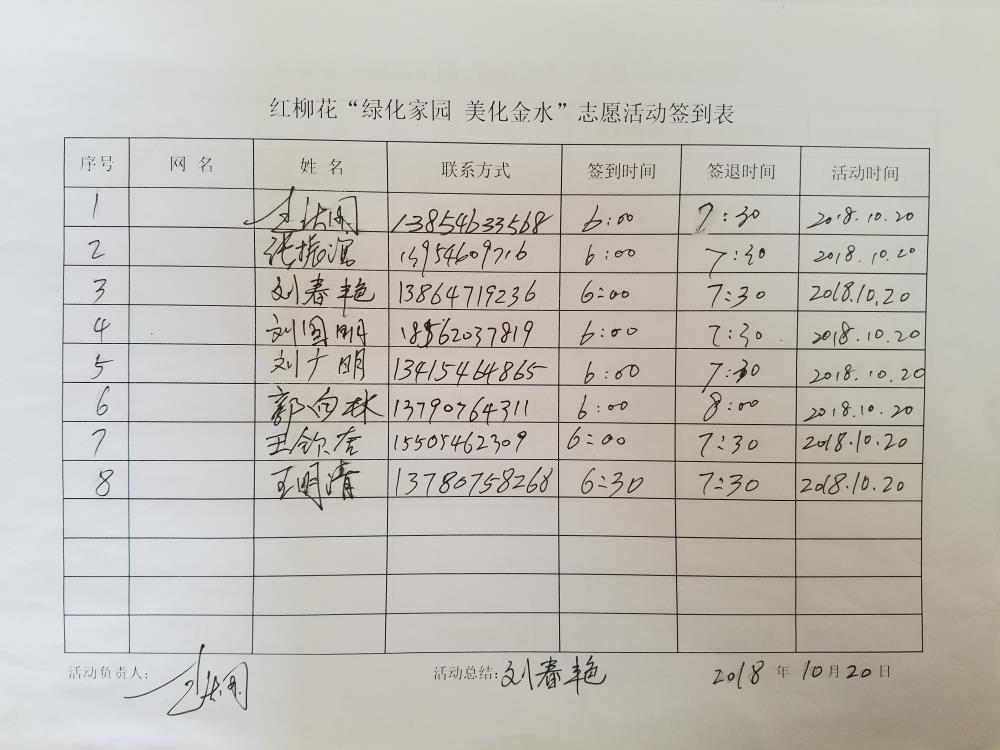 红柳花“绿化家园 美化金水”志愿活动签到表
序号 网名 姓名 联系方式 签到时间 签退时间 活动时间
1 13854633568 6:00 7:30 2018.10.20
2 张振 13954609716 6:00 7:30 2018.10.20
3 刘春艳 13864719236 6:00 7:30 2018.10.20
4 刘国明 18562037819 6:00 7:30 2018.10.20
5 刘广明 13415464865 6:00 7:30 2018.10.20
6 郭向林 13790764311 6:00 8:00 2018.10.20
7 王钦 15505462309 6:00 7:30 2018.10.20
8 王明清 13780758268 6:30 7:30 2018.10.20
活动负责人: 活动总结:刘春艳 2018年10月20日